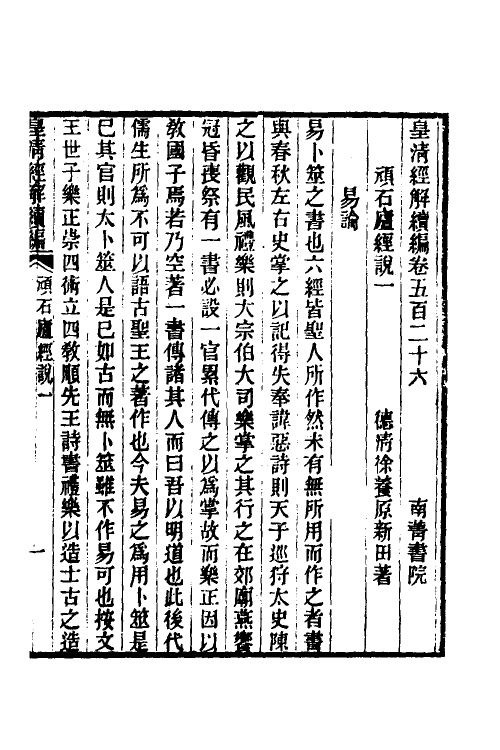 皇清經解續編卷五百二十六　南菁書院
頑石廬經說一　德清徐養原新田著
易論
易卜筮之書也六經皆聖人所作然未有無所用而作之者書
與春秋左右史掌之以記得失奉諱惡詩則天子巡狩太史陳
之以觀民風禮樂則大宗伯大司樂掌之其行之在郊廟燕饗
冠昏喪祭有一書必設一官累代傳之以為掌故而樂正因以
敎國子焉若乃空著一書傳諸其人而曰吾以明道也此後代
儒生所為不可以語古聖王之著作也今夫易之為用卜筮是
巳其官則大卜筮人是巳如古而無卜筮雖不作易可也按文
王世子樂正崇四術立四敎順先王詩書禮樂以造士古之造
皇清經解續編　頑石廬經說一　一